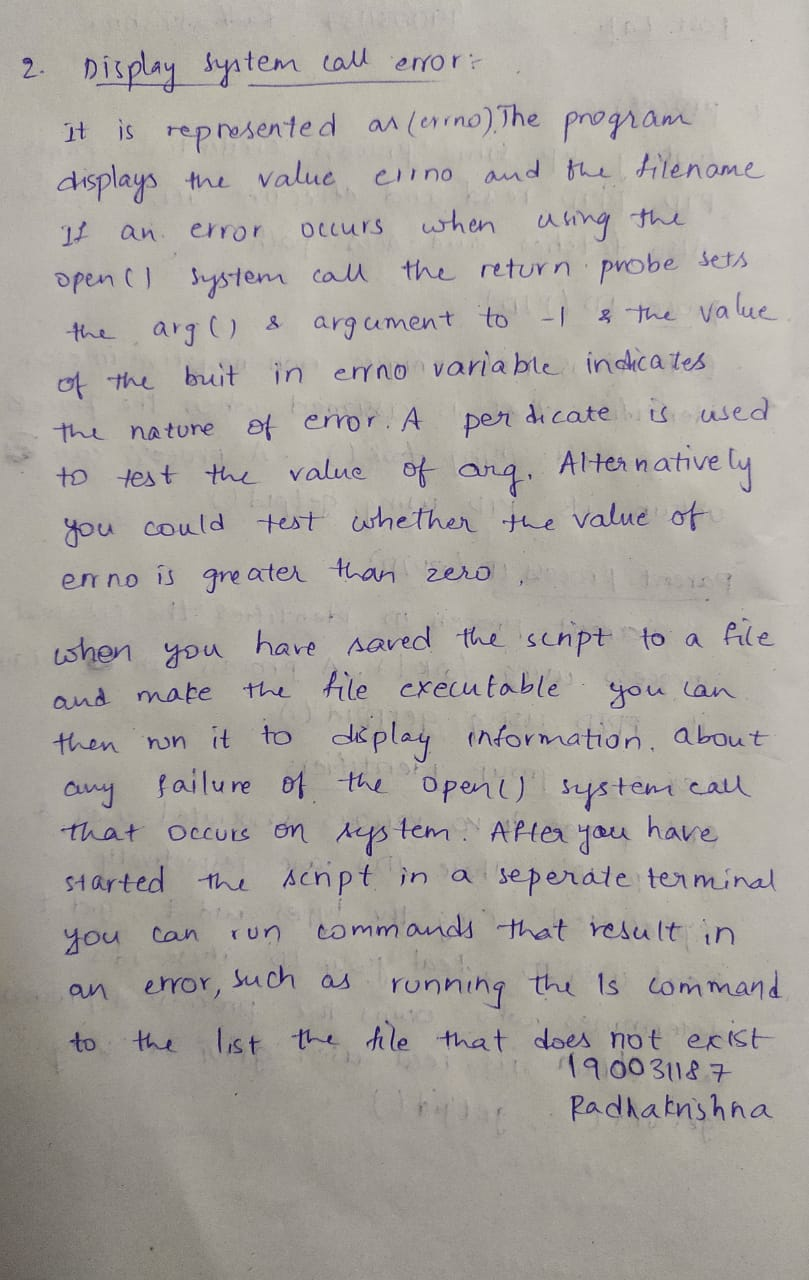 2. Display system call error:-
It is represented as (errno). The program
displays the value errno and the filename
If an error occurs when using the
open() system call the return probe sets
the arg() & argument to -1 & the value
of the buit in errno variable indicates
the nature of error. A perdicate is used
to test the value of arg. Alternatively
you could test whether the value of
errno is greater than zero.
when you have saved the script to a file
and make the file executable you can
then run it to display information. about
any failure of the open() system call
that occurs on system. After you have
started the script in a seperate terminal
you can run commands that result in
an error, such as running the ls command
to the list the file that does not exist
190031187
Radhakrishna